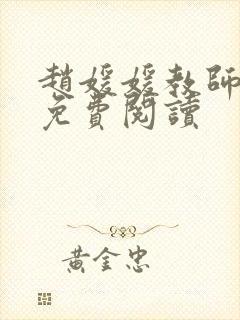 趙媛媛教師
免費閱讀
黃金忠